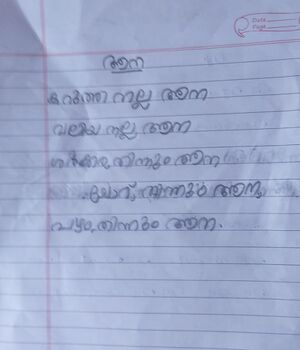 Date
Page
ആന
കറുത്ത നല്ല ആന
വലിയ നല്ല ആന
ശർക്കര തിന്നും ആന
ചോറ് തിന്നും ആന
പഴം തിന്നും ആന.